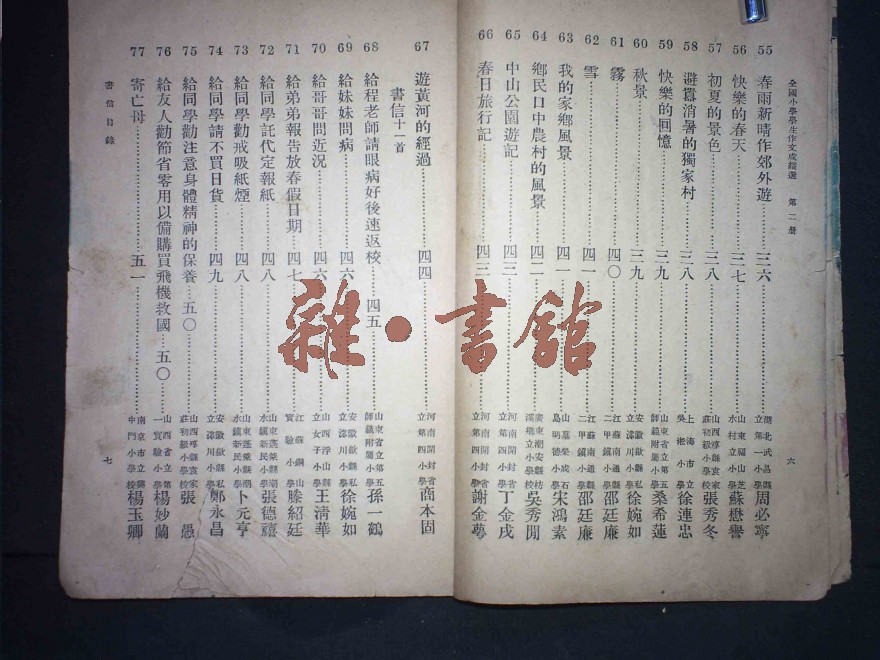 全國小學學生作文成績選　第二册
55 春雨新晴作郊外遊……三六 湖北武昌縣立第一小學 周必寧
56 快樂的春天……三七 山東福山芝水村立小學 蘇懋譽
57 初夏的景色……三八 山西崞縣袁家莊初級小學 張秀冬
58 避囂消暑的獨家村……三八 上海市立吳淞小學 徐連忠
59 快樂的回憶……三九 山東省立第五師範附屬小學 桑希蓮
60 秋景……三九 安徽歙縣私立漆川小學 徐婉如
61 霧……四〇 江蘇南通縣二甲鎮小學 邵廷廉
62 雪……四一 江蘇南通縣二甲鎮小學 邵廷廉
63 我的家鄉風景……四一 山東榮成石島明德小學 宋鴻素
64 鄉民口中農村的風景……四二 廣東潮安縣立小學 吳秀閒
65 中山公園遊記……四三 河南開封省立第四小學 丁金戌
66 春日旅行記……四三 河南開封省立第四小學 謝金蕚
六
67 遊黃河的經過……四四 河南開封省立第四小學 商本固
書信十一首
68 給程老師請眼病好後速返校……四五 山東省立第五師範附屬小學 孫一鶴
69 給妹妹問病……四六 安徽歙縣私立漆川小學 徐婉如
70 給哥哥問近況……四六 山西浮山縣立女子小學 王淸華
71 給弟弟報告放春假日期……四七 江蘇銅山實驗小學 滕紹廷
72 給同學託代定報紙……四八 山東蓬萊縣潮水鎮新民小學 張德禧
73 給同學勸戒吸紙煙……四八 山東蓬萊縣潮水鎮新民小學 卜元亨
74 給同學請不買日貨……四九 安徽歙縣私立漆川小學 鄭永昌
75 給同學勸注意身體精神的保養……五〇 山西崞縣袁家莊初級小學 張愚
76 給友人勸節省零用以備購買飛機救國……五〇 山西省立第一實驗小學 楊妙蘭
77 寄亡母……五一 南京市立中門小學校 楊玉卿
書信目錄
七
雜·書館